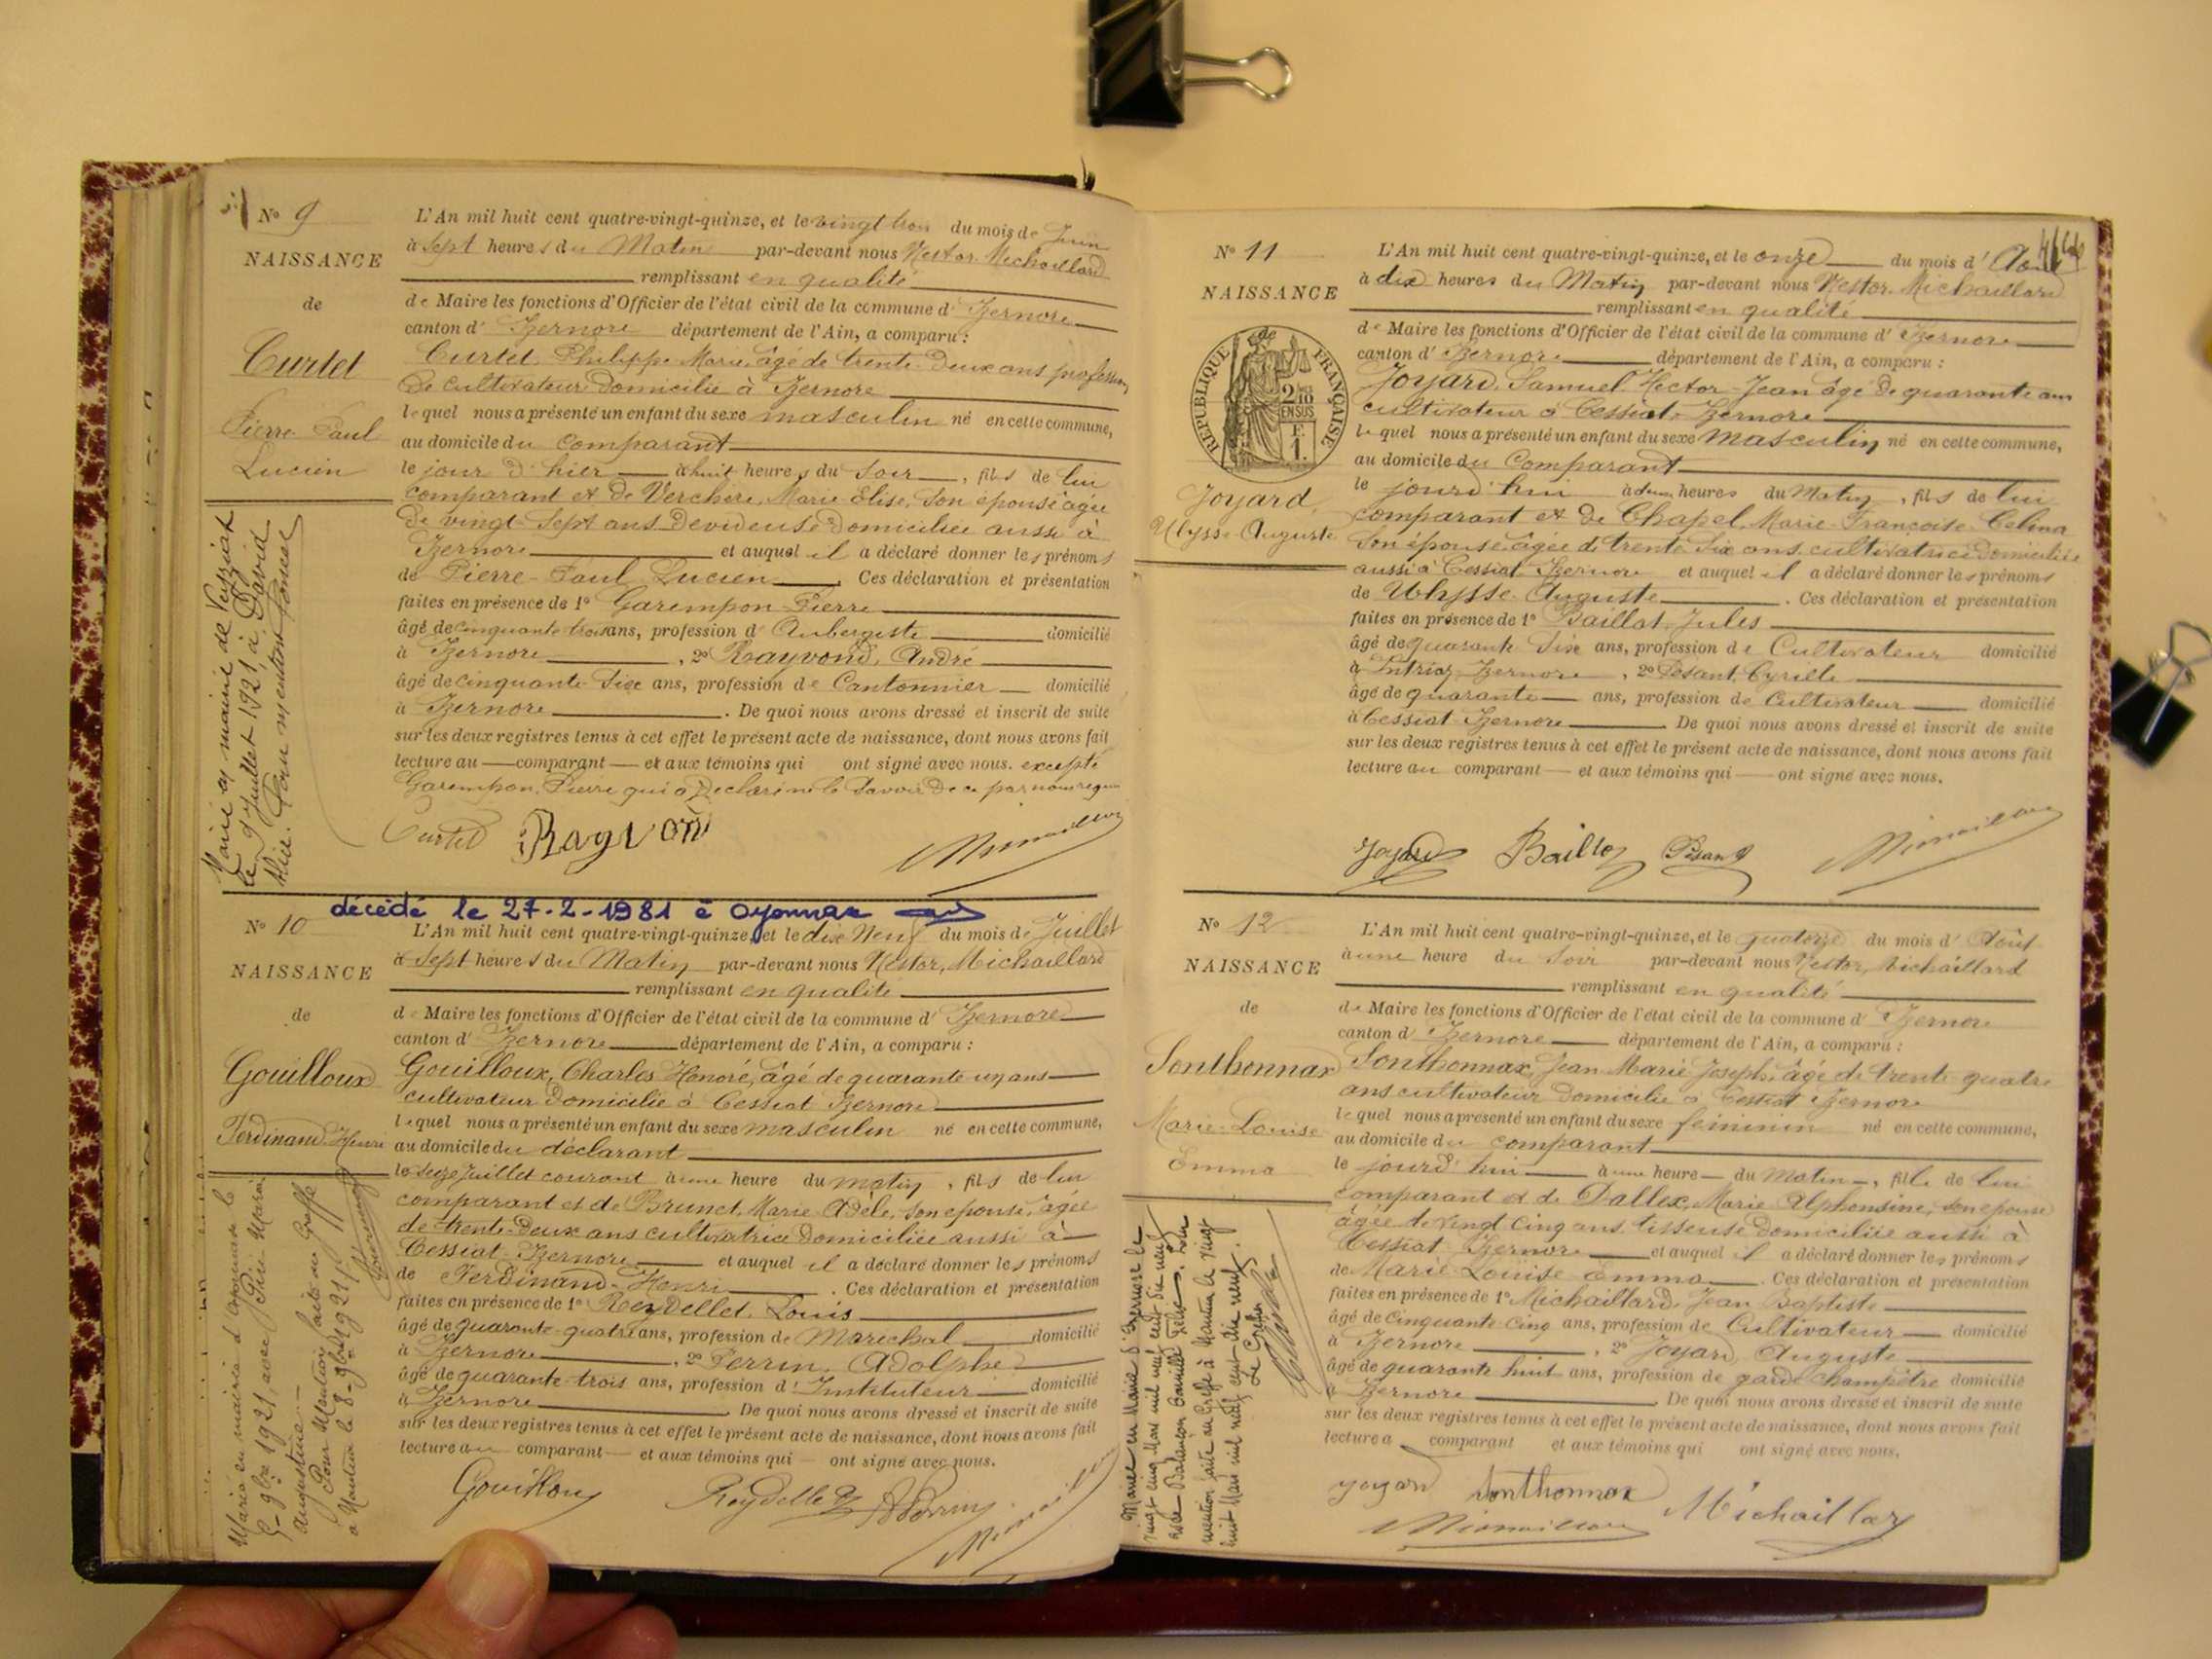 N° 9
NAISSANCE
de
Curtet
Pierre Paul
Lucien
L'An mil huit cent quatre-vingt-quinze, et le vingt trois du mois de Juin
à sept heures du Matin par-devant nous Nestor Michaillard
remplissant en qualité
de Maire les fonctions d'Officier de l'état civil de la commune d'Izernore
canton d'Izernore département de l'Ain, a comparu :
Curtet, Philippe Marie, âgé de trente-deux ans profession
de cultivateur domicilié à Izernore
lequel nous a présenté un enfant du sexe masculin né en cette commune,
au domicile du comparant
le jour d'hier à huit heures du soir, fils de lui
comparant et de Verchère, Marie Elise, son épouse âgée
de vingt-sept ans Dévideuse domiciliée aussi à
Izernore et auquel il a déclaré donner les prénoms
de Pierre-Paul Lucien. Ces déclaration et présentation
faites en présence de 1° Garempon Pierre
âgé de cinquante trois ans, profession d'Aubergiste domicilié
à Izernore, 2° Rayvond, André
âgé de cinquante-six ans, profession de Cantonnier domicilié
à Izernore. De quoi nous avons dressé et inscrit de suite
sur les deux registres tenus à cet effet le présent acte de naissance, dont nous avons fait
lecture au comparant et aux témoins qui ont signé avec nous. excepté
Garempon, Pierre qui a déclaré ne le savoir de ce par nous requis
Curtet Rayvond
Marié en mairie de Veyziat
le 9 Juillet 1921 à David
Alice. Pour mention
décédé le 27-2-1981 à Oyonnax
N° 10
NAISSANCE
de
Gouilloux
Ferdinand Henri
L'An mil huit cent quatre-vingt-quinze, et le dix Neuf du mois de Juillet
à sept heures du Matin par-devant nous Nestor, Michaillard
remplissant en qualité
de Maire les fonctions d'Officier de l'état civil de la commune d'Izernore
canton d'Izernore département de l'Ain, a comparu :
Gouilloux, Charles Honoré, âgé de quarante-un ans
cultivateur domicilié à Cessiat Izernore
lequel nous a présenté un enfant du sexe masculin né en cette commune,
au domicile du déclarant
le seize Juillet courant à une heure du matin, fils de lui
comparant et de Brunet, Marie Adèle, son épouse, âgée
de trente-deux ans cultivatrice domiciliée aussi à
Cessiat-Izernore et auquel il a déclaré donner les prénoms
de Ferdinand-Henri. Ces déclaration et présentation
faites en présence de 1° Reydellet, Louis
âgé de quarante-quatre ans, profession de Maréchal domicilié
à Izernore, 2° Perrin, Adolphe
âgé de quarante-trois ans, profession d'Instituteur domicilié
à Izernore. De quoi nous avons dressé et inscrit de suite
sur les deux registres tenus à cet effet le présent acte de naissance, dont nous avons fait
lecture au comparant et aux témoins qui ont signé avec nous.
Gouilloux Reydellet A Perrin
Marié en mairie d'Oyonnax le
5-9bre 1921, avec Marie
Augustine
Pour Mention faite au Greffe
à Nantua le 8-9bre 1921
N° 11
NAISSANCE
de
RÉPUBLIQUE FRANÇAISE
2/10
EN SUS
F.
1.
Joyard,
Ulysse-Auguste
L'An mil huit cent quatre-vingt-quinze, et le onze du mois d'Août
à dix heures du Matin par-devant nous Nestor Michaillard
remplissant en qualité
de Maire les fonctions d'Officier de l'état civil de la commune d'Izernore
canton d'Izernore département de l'Ain, a comparu :
Joyard, Samuel Hector-Jean âgé de quarante ans
cultivateur à Cessiat-Izernore
lequel nous a présenté un enfant du sexe masculin né en cette commune,
au domicile du Comparant
le jourd'hui à deux heures du Matin, fils de lui
comparant et de Chapel, Marie-Françoise-Celina
son épouse, âgée de trente six ans, cultivatrice domiciliée
aussi à Cessiat Izernore et auquel il a déclaré donner les prénoms
de Ulysse-Auguste. Ces déclaration et présentation
faites en présence de 1° Baillat, Jules
âgé de quarante six ans, profession de Cultivateur domicilié
à Intriaz Izernore, 2° Pesant, Cyrille
âgé de quarante ans, profession de Cultivateur domicilié
à Cessiat-Izernore. De quoi nous avons dressé et inscrit de suite
sur les deux registres tenus à cet effet le présent acte de naissance, dont nous avons fait
lecture au comparant et aux témoins qui ont signé avec nous.
Joyard Baillat Pesant
N° 12
NAISSANCE
de
Sonthonnax
Marie-Louise
Emma
L'An mil huit cent quatre-vingt-quinze, et le quatorze du mois d'Août
à une heure du soir par-devant nous Nestor, Michaillard
remplissant en qualité
de Maire les fonctions d'Officier de l'état civil de la commune d'Izernore
canton d'Izernore département de l'Ain, a comparu :
Sonthonnax, Jean Marie Joseph, âgé de trente-quatre
ans cultivateur domicilié à Cessiat Izernore
lequel nous a présenté un enfant du sexe féminin né en cette commune,
au domicile du comparant
le jourd'hui à une heure du Matin, fille de lui
comparant et de Dallex, Marie Alphonsine, son épouse
âgée de vingt cinq ans tisseuse domiciliée aussi à
Cessiat Izernore et auquel il a déclaré donner les prénoms
de Marie Louise Emma. Ces déclaration et présentation
faites en présence de 1° Michaillard, Jean Baptiste
âgé de cinquante-cinq ans, profession de Cultivateur domicilié
à Izernore, 2° Joyard, Auguste
âgé de quarante huit ans, profession de garde champêtre domicilié
à Izernore. De quoi nous avons dressé et inscrit de suite
sur les deux registres tenus à cet effet le présent acte de naissance, dont nous avons fait
lecture a comparant et aux témoins qui ont signé avec nous.
Joyard Sonthonnax Michaillard
Mariée en Mairie d'Izernore le
vingt cinq Mars mil neuf cent dix neuf
avec Balançon Camille
mention faite au Greffe à Nantua le vingt
huit Mars mil neuf cent dix neuf.
Le Greffier